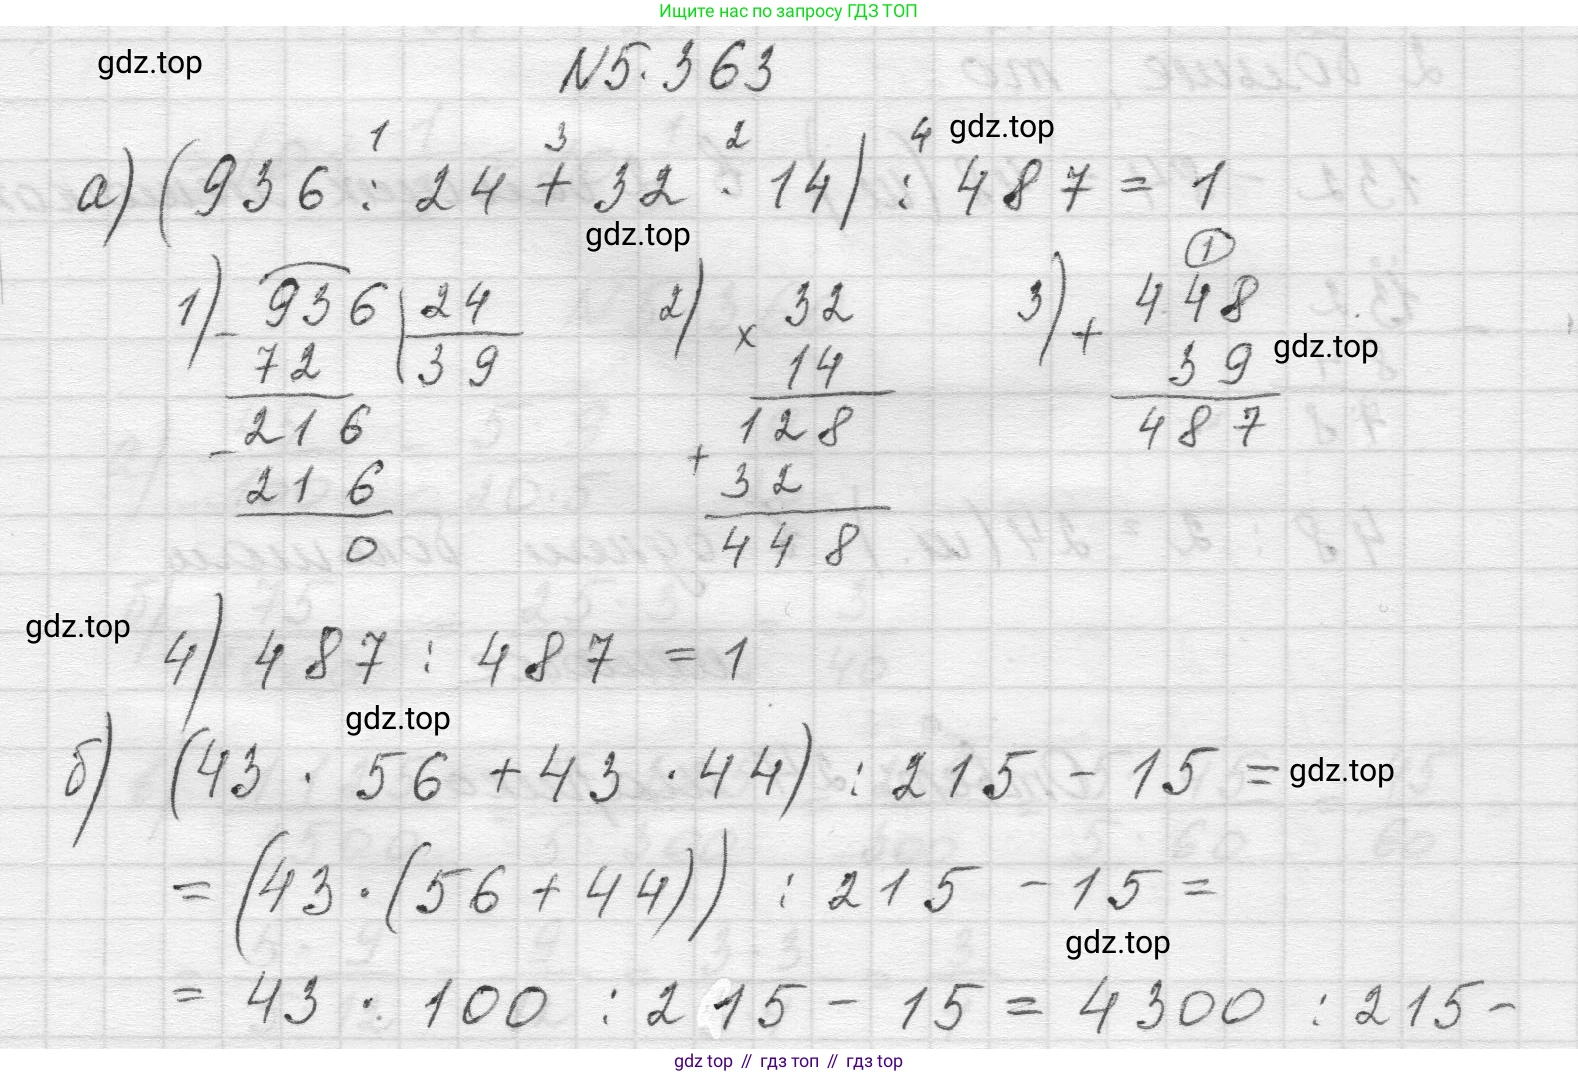 Ищите нас по запросу ГДЗ ТОП
gdz.top
N5.363
1 3 2 4 gdz.top
а) (936 : 24 + 32 · 14) : 487 = 1
gdz.top
1) 936 | 24 2) 32 3) 448
- 72 39 × 14 + 39 gdz.top
216 128 487
- 216 + 32
0 448
gdz.top
4) 487 : 487 = 1
gdz.top
б) (43 · 56 + 43 · 44) : 215 - 15 = gdz.top
= (43 · (56 + 44)) : 215 - 15 =
gdz.top
= 43 · 100 : 215 - 15 = 4300 : 215 -
gdz top // гдз топ // гдз top